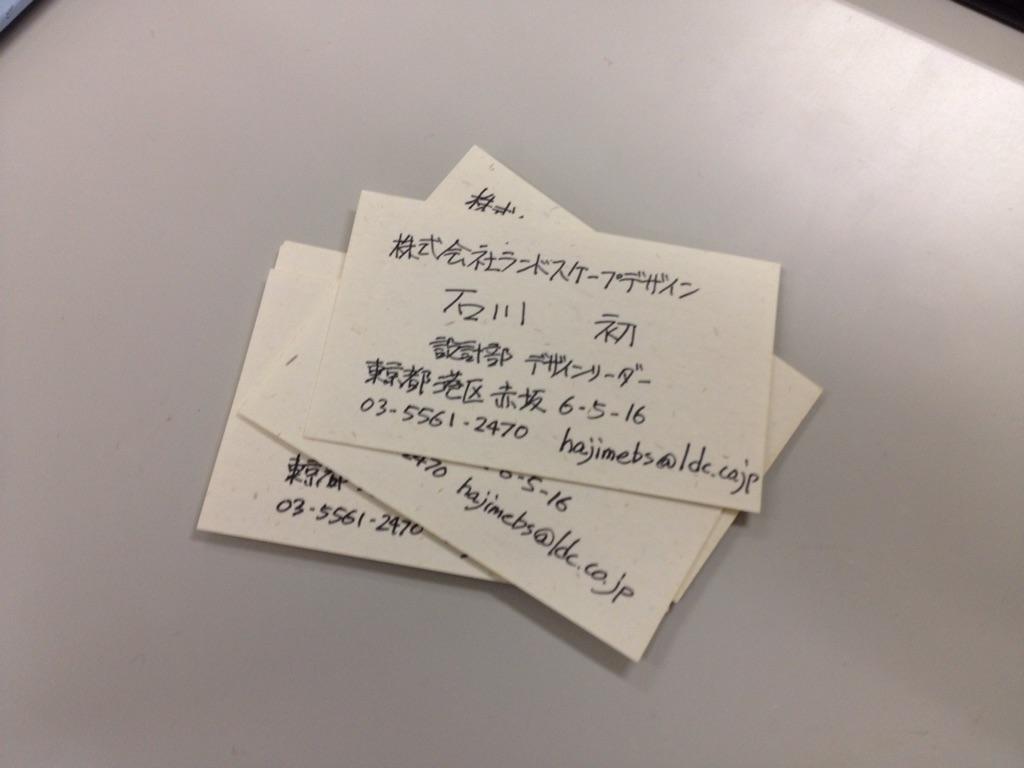 株式
株式会社ランドスケープデザイン
石川 初
設計部 デザインリーダー
東京都港区赤坂 6-5-16
03-5561-2470 hajimebs@ldc.co.jp
6-5-16
2470 hajimebs@ldc.co.jp
東京都
03-5561-2470